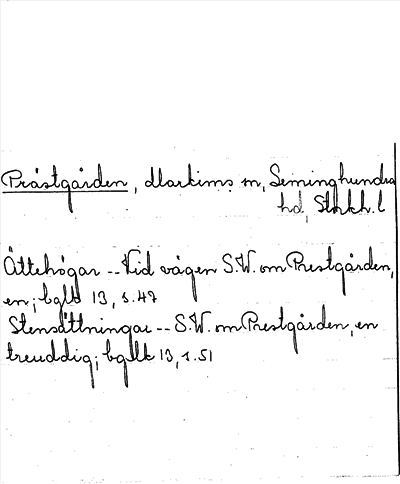 Prästgården, Markims sn, Seminghundra
hd, Stokh. l
Ättehögar -- Vid vägen S.W. om Prestgården,
en; bglk 13, s. 47
Stensättningar -- S.W. om Prestgården, en
treuddig; bglk 13, s. 51